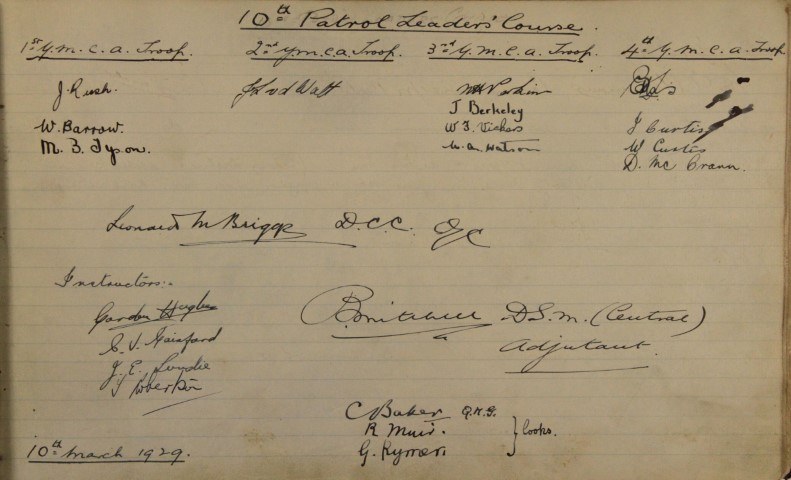 10th Patrol Leaders' Course.
1st Y.M.C.A. Troop.
J. Rush.
W. Barrow.
M. B. Tyson.
2nd Y.M.C.A. Troop.
Watt
3rd Y.M.C.A. Troop.
J Berkeley
W. F. Vickers
W. A. Watson
4th Y.M.C.A. Troop
J Curtis
W Curtis
D. Mc Crann.
Leonard M Briggs D.C.C. O/C
Instructors:-
Gordon Hughes
C. V. Gaisford
J. E. Lundie
D.S.M. (Central)
Adjutant.
C Baker Q.M.S.
R Muir.
G. Rymer. } Cooks.
10th March 1929.